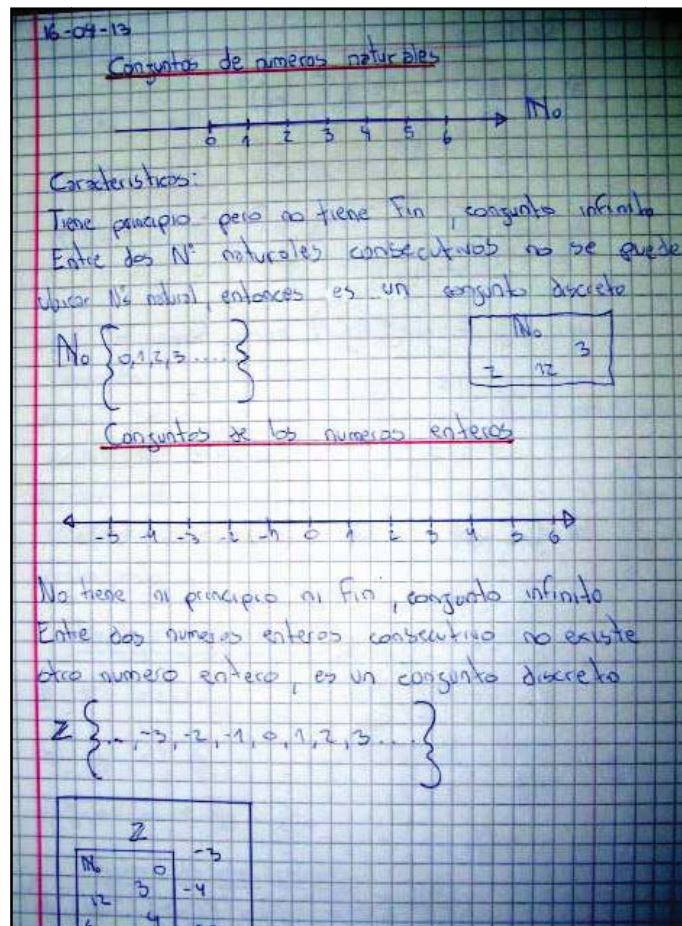 16-04-13
Conjuntos de numeros naturales
N₀
0 1 2 3 4 5 6
Caracteristicas:
Tiene principio pero no tiene Fin, conjunto infinito
Entre dos N° naturales consecutivos no se puede
ubicar N°s natural, entonces es un conjunto discreto
N₀ {0,1,2,3.....}
N₀
3
2 12
Conjuntos de los numeros enteros
-5 -4 -3 -2 -1 0 1 2 3 4 5 6
No tiene ni principio ni Fin, conjunto infinito
Entre dos numeros enteros consecutivo no existe
otro numero entero, es un conjunto discreto
Z {..., -3, -2, -1, 0, 1, 2, 3....}
Z
N₀ 0 -3
12 3 -4
4